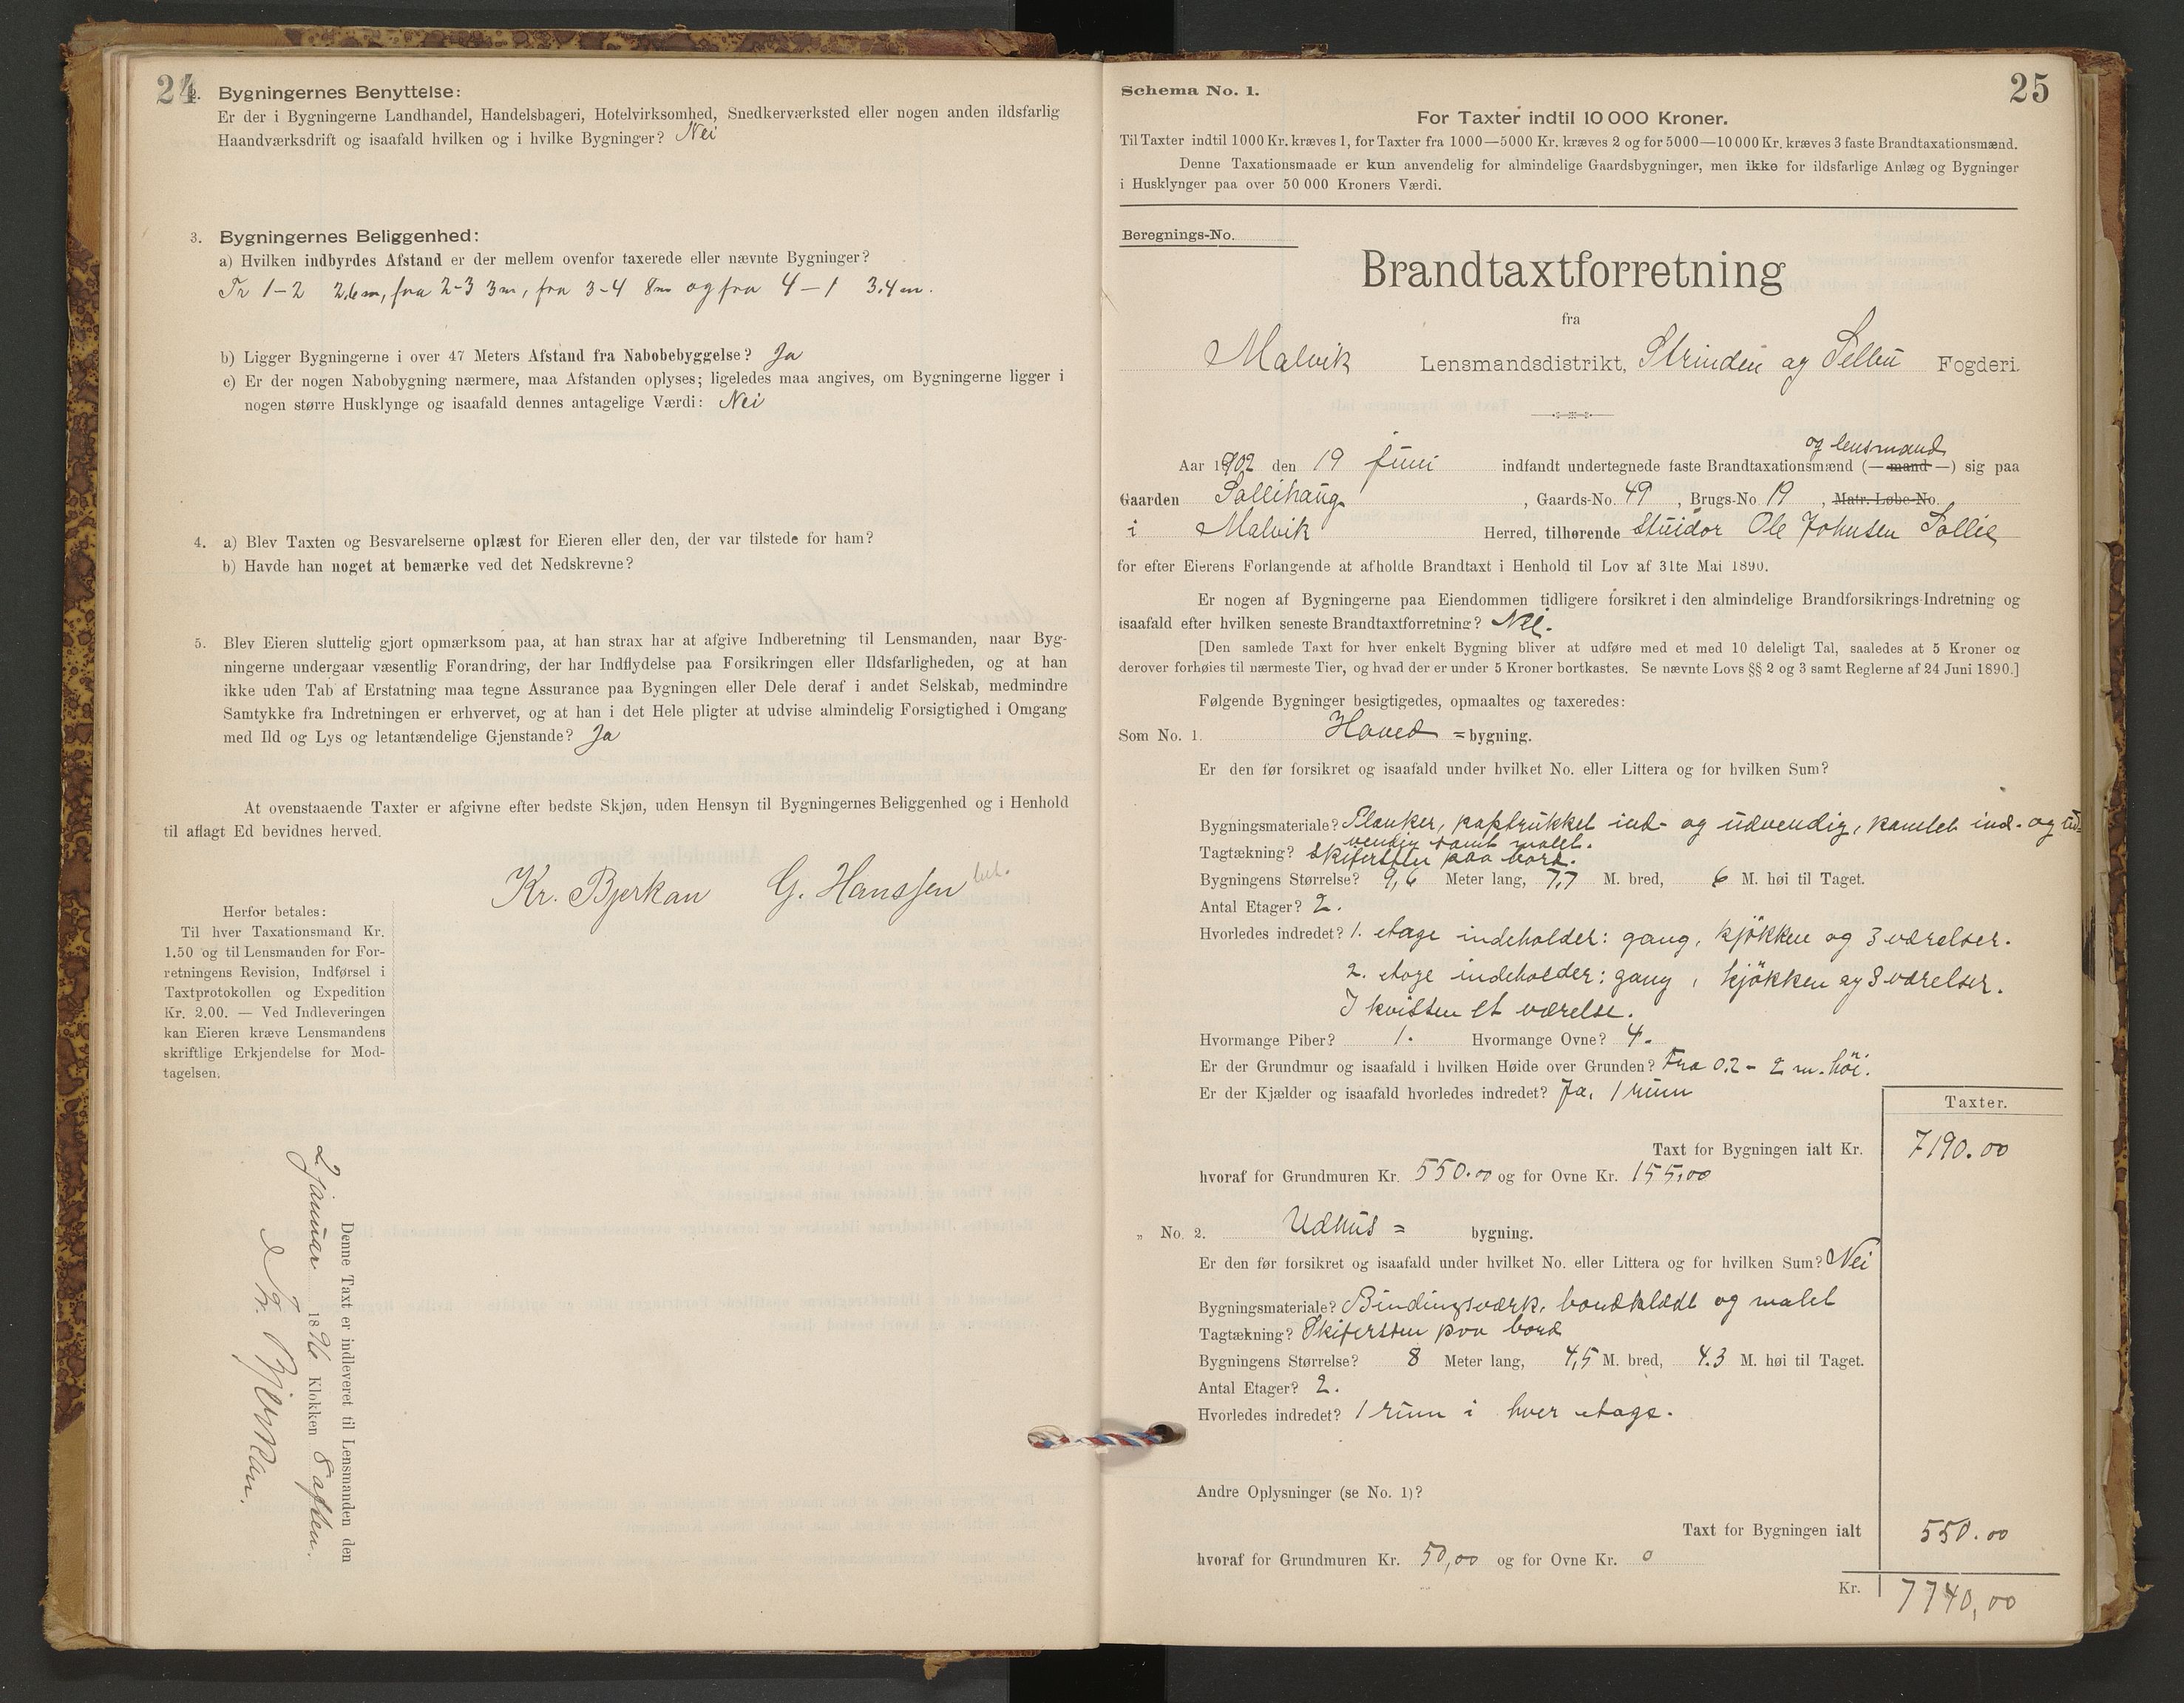 24
2. Bygningernes Benyttelse:
Er der i Bygningerne Landhandel, Handelsbageri, Hotelvirksomhed, Snedkerværksted eller nogen anden ildsfarlig
Haandværksdrift og isaafald hvilken og i hvilke Bygninger? Nei
3. Bygningernes Beliggenhed:
a) Hvilken indbyrdes Afstand er der mellem ovenfor taxerede eller nævnte Bygninger?
Fr 1-2 2,6 m, fra 2-3 3m, fra 3-4 8m og fra 4-1 3.4 m.
b) Ligger Bygningerne i over 47 Meters Afstand fra Nabobebyggelse? Ja
c) Er der nogen Nabobygning nærmere, maa Afstanden oplyses; ligeledes maa angives, om Bygningerne ligger i
nogen større Husklynge og isaafald dennes antagelige Værdi: Nei
4. a) Blev Taxten og Besvarelserne oplæst for Eieren eller den, der var tilstede for ham?
b) Havde han noget at bemærke ved det Nedskrevne?
5. Blev Eieren sluttelig gjort opmærksom paa, at han strax har at afgive Indberetning til Lensmanden, naar Byg-
ningerne undergaar væsentlig Forandring, der har Indflydelse paa Forsikringen eller Ildsfarligheden, og at han
ikke uden Tab af Erstatning maa tegne Assurance paa Bygningen eller Dele deraf i andet Selskab, medmindre
Samtykke fra Indretningen er erhvervet, og at han i det Hele pligter at udvise almindelig Forsigtighed i Omgang
med Ild og Lys og letantændelige Gjenstande? Ja
At ovenstaaende Taxter er afgivne efter bedste Skjøn, uden Hensyn til Bygningernes Beliggenhed og i Henhold
til aflagt Ed bevidnes herved.
Kr. Bjerkan G. Hanssen
Herfor betales:
Til hver Taxationsmand Kr.
1.50 og til Lensmanden for For-
retningens Revision, Indførsel i
Taxtprotokollen og Expedition
Kr. 2.00. — Ved Indleveringen
kan Eieren kræve Lensmandens
skriftlige Erkjendelse for Mod-
tagelsen.
Denne Taxt er indleveret til Lensmanden den
2 januar 1896 Klokken 8 aften.
Kr. Bjerkan.
25
Schema No. 1.
For Taxter indtil 10 000 Kroner.
Til Taxter indtil 1000 Kr. kræves 1, for Taxter fra 1000—5000 Kr. kræves 2 og for 5000—10 000 Kr. kræves 3 faste Brandtaxationsmænd.
Denne Taxationsmaade er kun anvendelig for almindelige Gaardsbygninger, men ikke for ildsfarlige Anlæg og Bygninger
i Husklynger paa over 50 000 Kroners Værdi.
Beregnings-No.
Brandtaxtforretning
fra
Malvik Lensmandsdistrikt, Strinden og Selbu Fogderi.
og lensmand
Aar 1902 den 19 juni indfandt undertegnede faste Brandtaxationsmænd (— mand —) sig paa
Gaarden Sollihaug, Gaards-No. 49, Brugs-No 19, Matr. Løbe-No.
i Malvik Herred, tilhørende Stuidør Ole Johnsen Sollie
for efter Eierens Forlangende at afholde Brandtaxt i Henhold til Lov af 31te Mai 1890.
Er nogen af Bygningerne paa Eiendommen tidligere forsikret i den almindelige Brandforsikrings-Indretning og
isaafald efter hvilken seneste Brandtaxtforretning? Nei.
[Den samlede Taxt for hver enkelt Bygning bliver at udføre med et med 10 deleligt Tal, saaledes at 5 Kroner og
derover forhøies til nærmeste Tier, og hvad der er under 5 Kroner bortkastes. Se nævnte Lovs §§ 2 og 3 samt Reglerne af 24 Juni 1890.]
Følgende Bygninger besigtigedes, opmaaltes og taxeredes:
Som No. 1. Hoved =bygning.
Er den før forsikret og isaafald under hvilket No. eller Littera og for hvilken Sum?
Bygningsmateriale? Planker, paptrukket ind- og udvendig, panelet ind- og ud-
vendig samt malet.
Tagtækning? Skifersten paa bord.
Bygningens Størrelse? 9,6 Meter lang, 7,7 M. bred, 6 M. høi til Taget.
Antal Etager? 2.
Hvorledes indredet? 1. etage indeholder: gang, kjökken og 3 værelser.
2. etage indeholder: gang, kjökken og 3 værelser.
I kvisten et værelse.
Hvormange Piber? 1. Hvormange Ovne? 4.
Er der Grundmur og isaafald i hvilken Høide over Grunden? Fra 0,2 - 2 m. höi.
Er der Kjælder og isaafald hvorledes indredet? Ja, 1 rum
Taxter.
Taxt for Bygningen ialt Kr. 7190.00
hvoraf for Grundmuren Kr. 550.00 og for Ovne Kr. 155,00
„ No. 2. Udhus = bygning.
Er den før forsikret og isaafald under hvilket No. eller Littera og for hvilken Sum? Nei
Bygningsmateriale? Bindingsværk, bordklædt og malet
Tagtækning? Skifersten paa bord
Bygningens Størrelse? 8 Meter lang, 4,5 M. bred, 4.3 M. høi til Taget.
Antal Etager? 2.
Hvorledes indredet? 1 rum i hver etage.
Andre Oplysninger (se No. 1)?
Taxt for Bygningen ialt 550.00
hvoraf for Grundmuren Kr. 50,00 og for Ovne Kr. 0
Kr. 7740,00